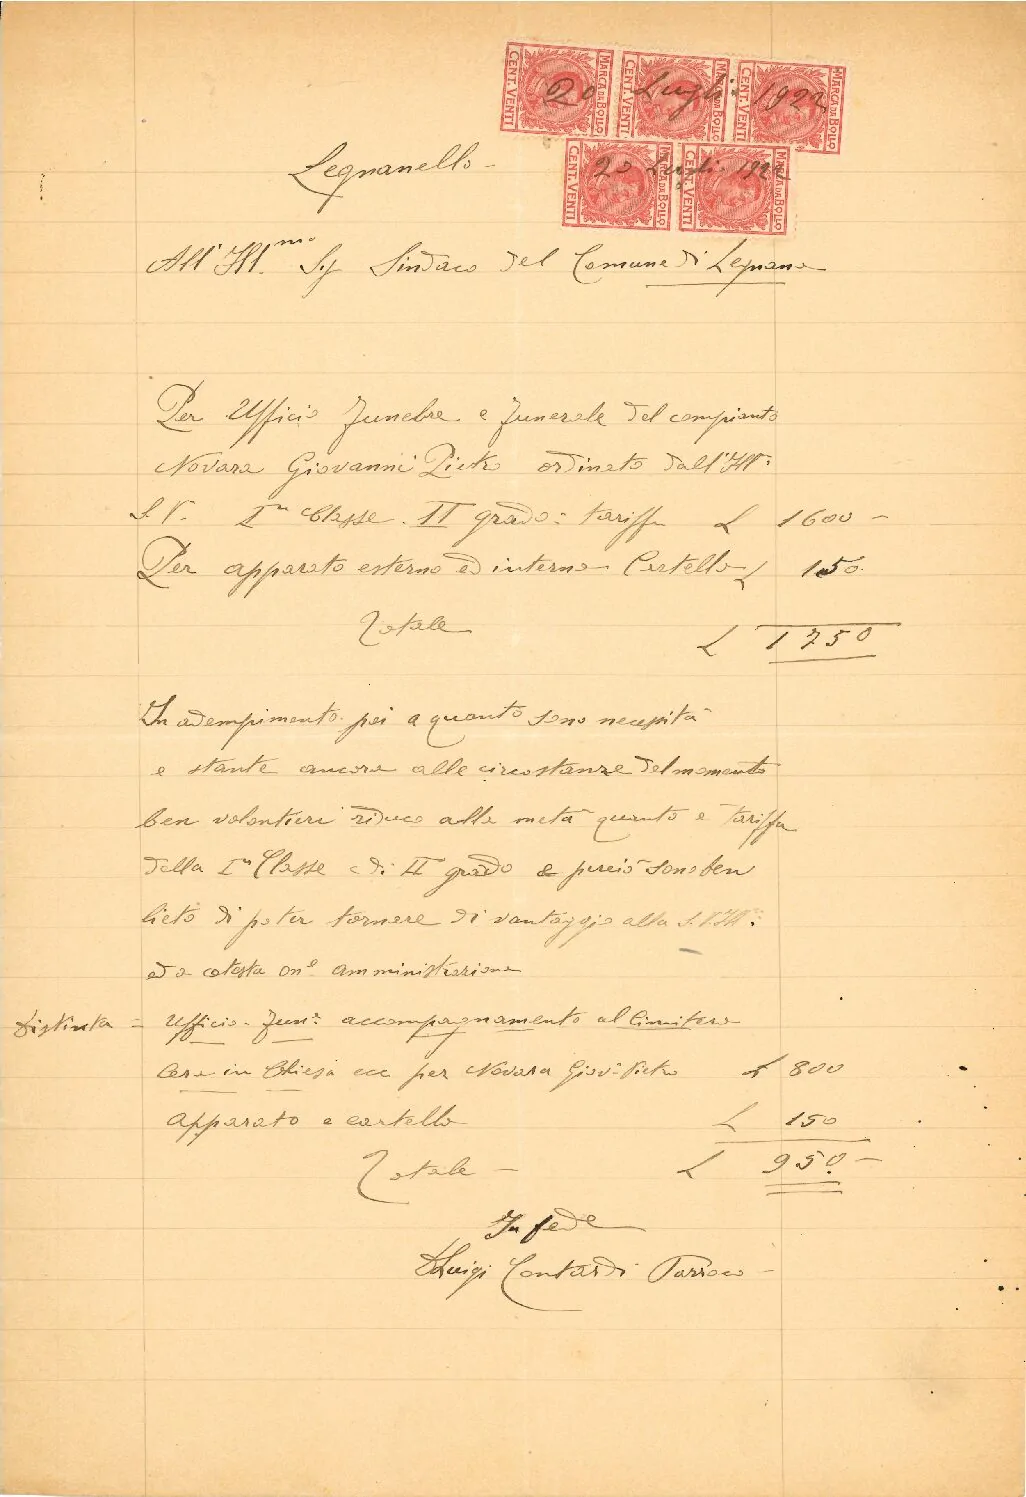 MARCA DA BOLLO CENT. VENTI MARCA DA BOLLO CENT. VENTI MARCA DA BOLLO CENT. VENTI
20 Luglio 1922
MARCA DA BOLLO CENT. VENTI MARCA DA BOLLO CENT. VENTI
20 Luglio 1922
Legnanello -
All'Ill.mo Sig Sindaco del Comune di Legnano
Per Ufficio Funebre e Funerale del compianto
Novara Giovanni Pietro ordinato dall'Ill:
S. V. Iª Classe. II grado: tariffa £ 1600 -
Per apparato esterno ed interno Cartello £ 150.
Totale £ 1750
In adempimento poi a quanto sono necessità
e stante ancora alle circostanze del momento
ben volontieri riduco alla metà quanto è tariffa
della Iª Classe e di II grado e perciò sono ben
lieto di poter tornare di vantaggio alla S. V. Ill:
ed a cotesta on.e amministrazione
Distinta = Ufficio. Fun: accompagnamento al Cimitero
Cera in Chiesa ecc per Novara Giov. Pietro £ 800
Apparato e cartello £ 150
Totale - £ 950. -
In fede
D Luigi Contardi Parroco -